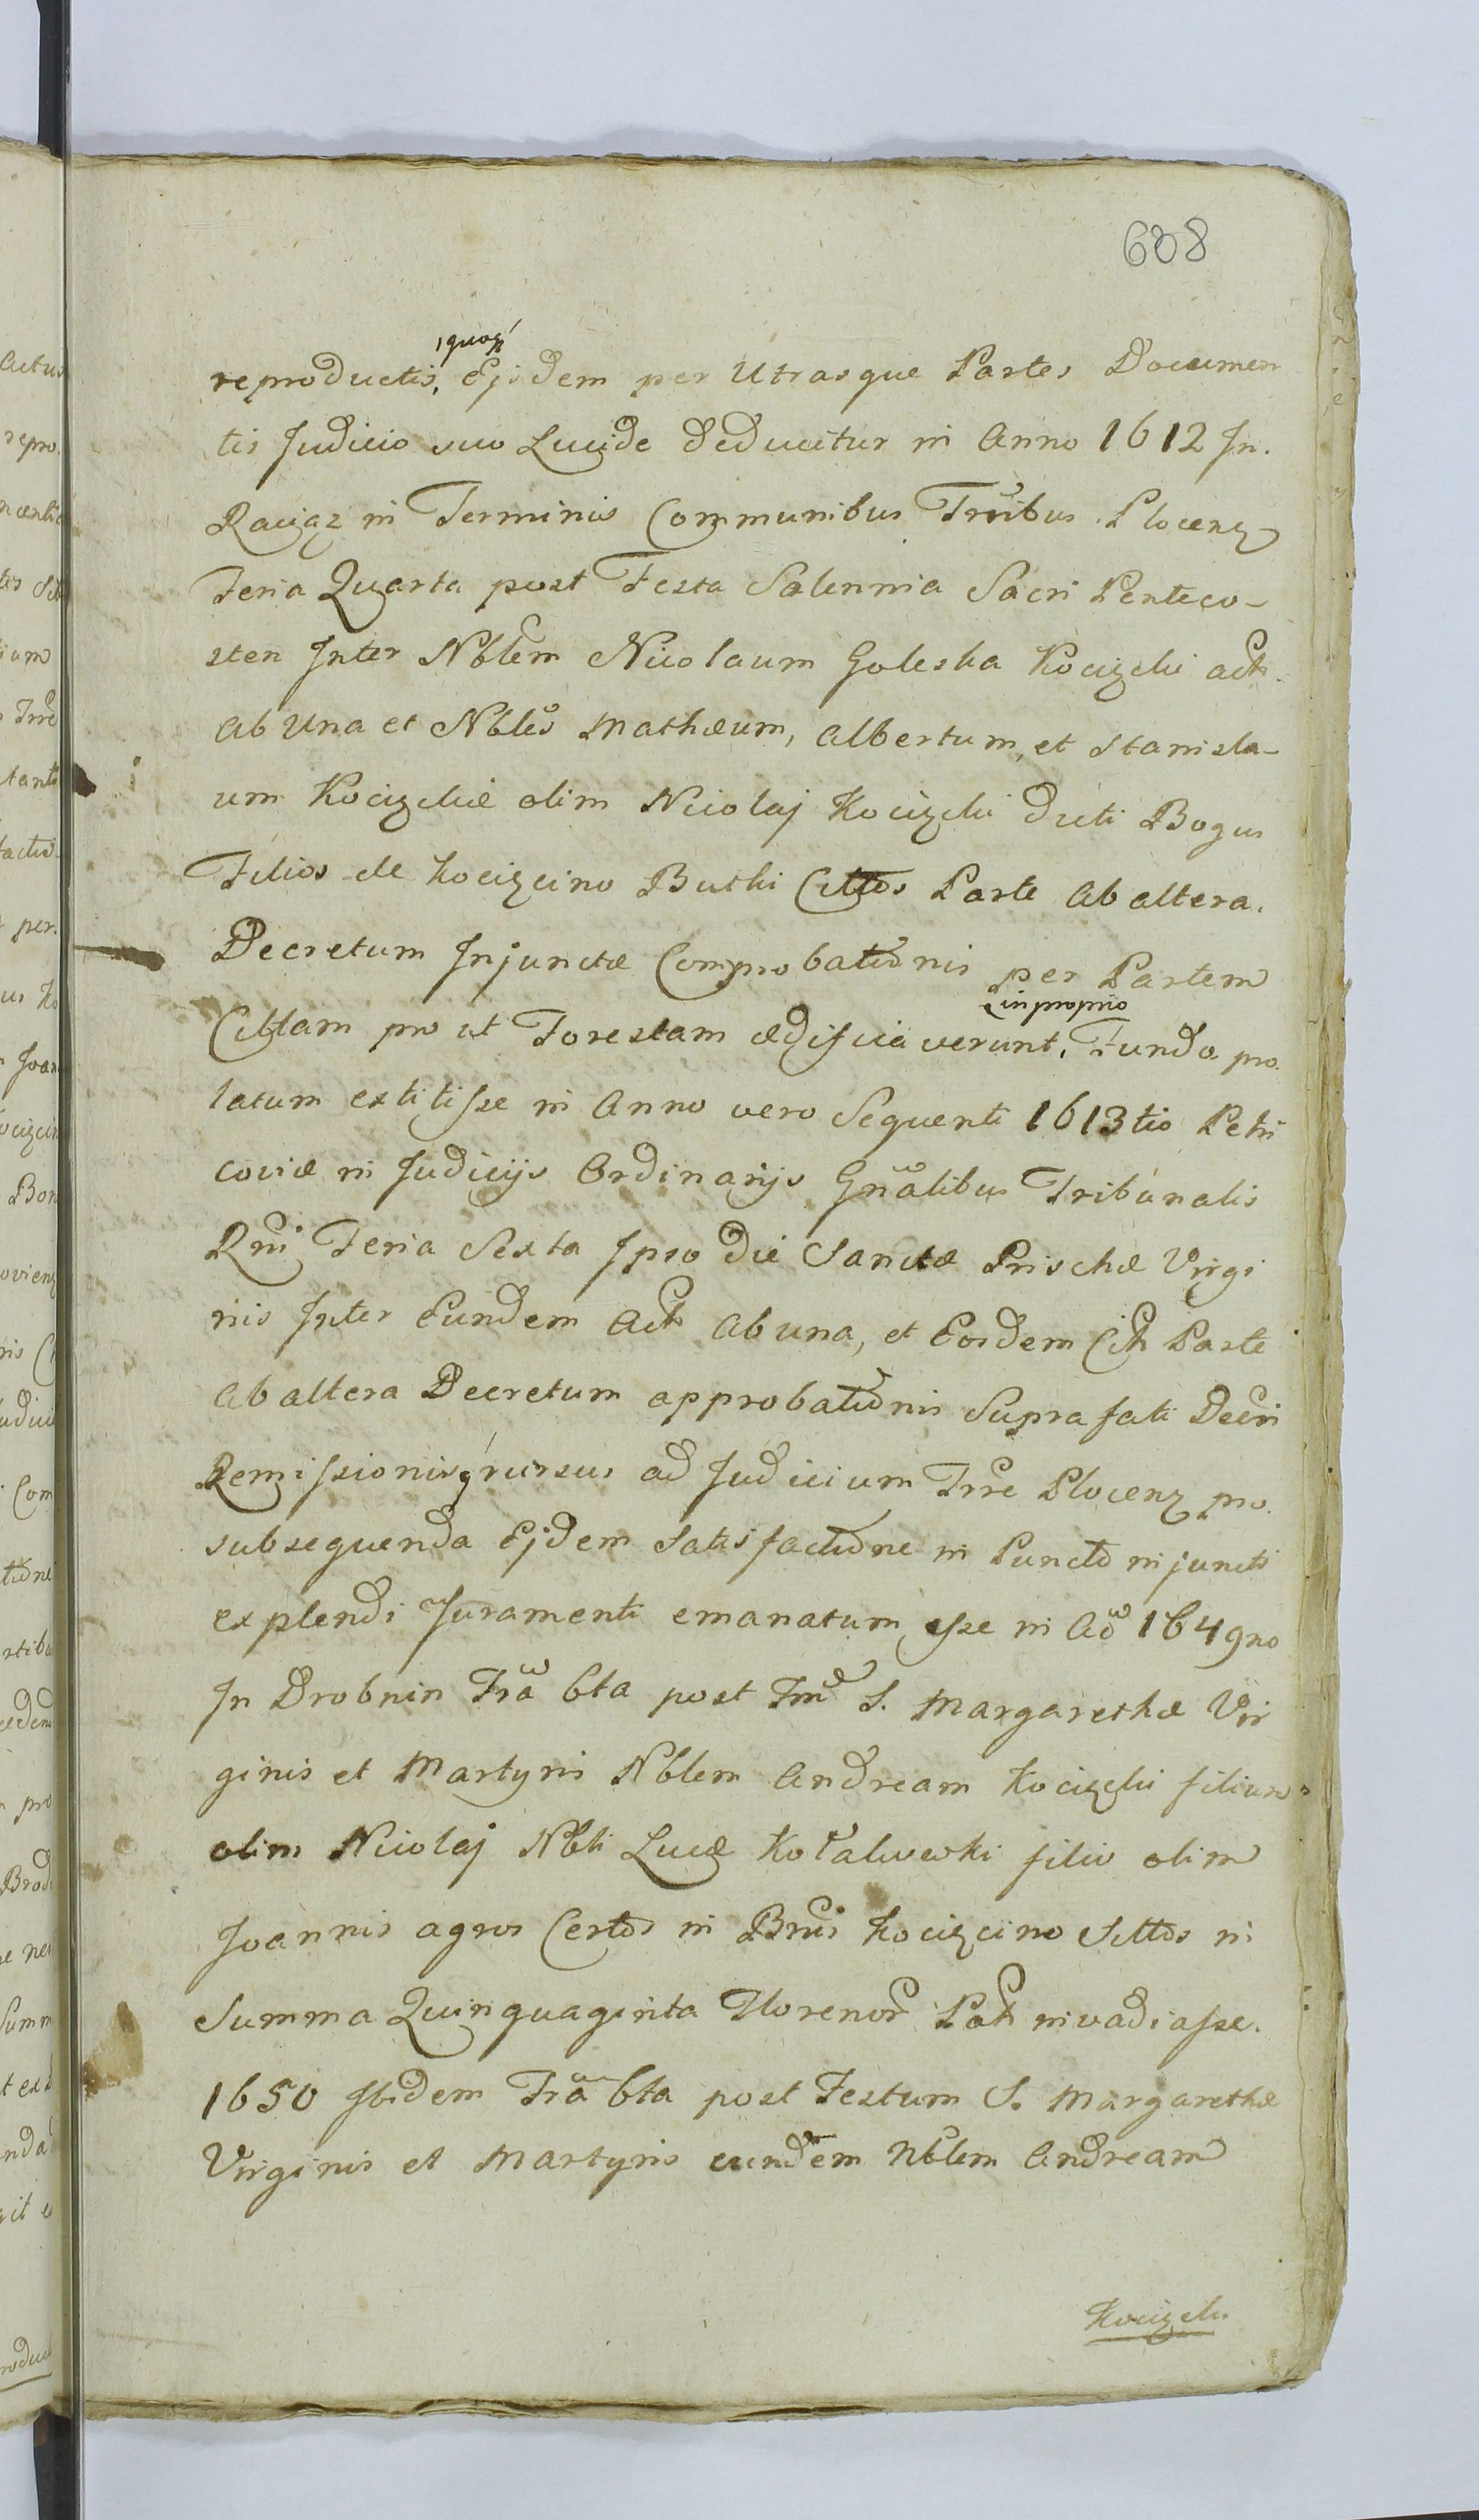 608
quoq
reproductis, Ejsdem per Utrasque Partes Documen
tis Judicio suo Lucide deducitur in Anno 1612 In.
Raciąz in Terminis Communibus Trribus Plocenz
Feria Quarta post Festa Solennia Sacri Penteco-
sten Inter Nblem Nicolaum Goleska Kocięcki act.
ab Una et Nbles Mathæum, Albertum, et Stanisla-
um Kocięckie olim Nicolaj Kocięcki dicti Bogus
Filios de Kocięcino Butki Cittos Parte ab altera.
Decretum Injunctæ Comprobationis per Partem
in proprio
Cittam pro ut Forestam ædificia verunt, Fundo pro
latum extitisse in Anno vero Sequenti 1613tio Petri
coviæ in Judicijs Ordinarijs Gnalibus Tribunalis
Rni Feria Sexta Ipso die Sanctæ Prischæ Virgi
nis Inter Eundem Act ab una, et Eosdem Cit Parte
ab altera Decretum approbationis Supra fati Decri
Remissionisq rursus ad Judicium Trre Plocenz pro
subsequenda Ejdem Satisfactione in Puncto injuncti
explendi Juramenti emanatum esse in Ao 1649no
In Drobnin Fra 6ta post Fm S. Margarethæ Vir
ginis et Martyris Nblem Andream Kocięcki filium
olim Nicolaj Nbli Lucæ Kotalewski filio olim
Joannis agros Certos in Bnis Kocięcino Sittos in
Summa Quinquaginta Florenor Pol invadiasse.
1650 Ibidem Fra 6ta post Festum S. Margarethæ
Virginis et Martyris eundem Nblem Andream
Kocięcki